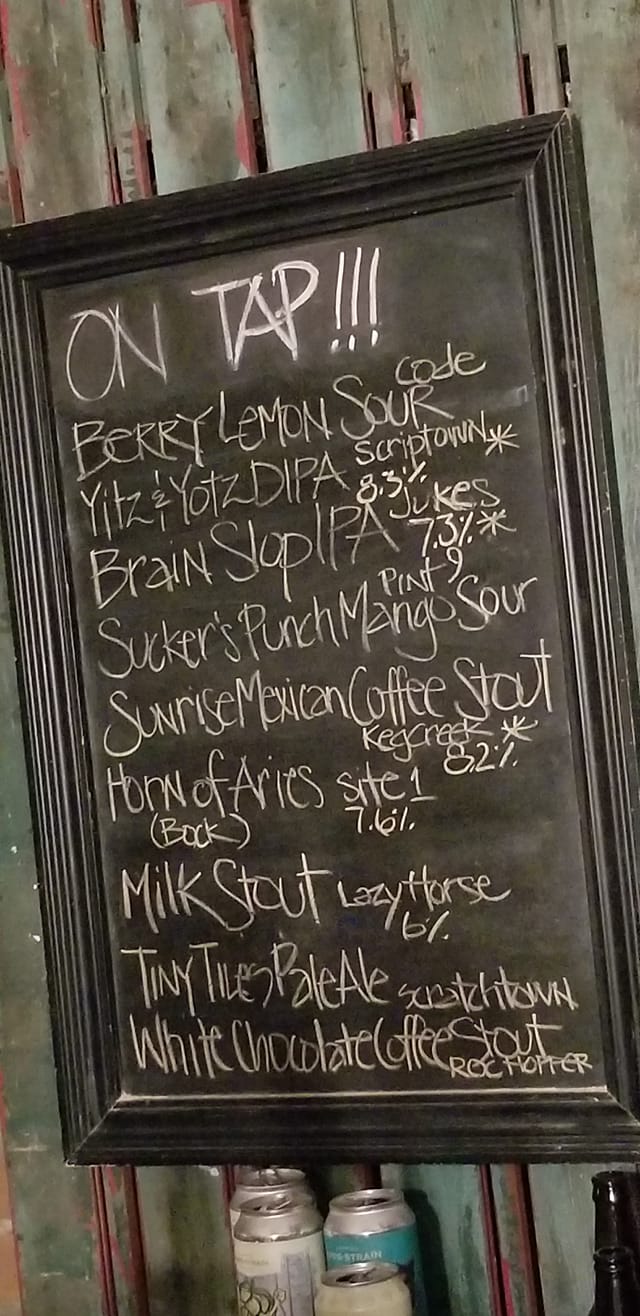 ON TAP!!!
BERRY LEMON SOUR Code
Yitz & Yotz DIPA Scriptown *
8.3%
Brain Slop IPA Jukes
7.3% *
Sucker's Punch Mango Sour Pint 9
Sunrise Mexican Coffee Stout
Kegcreek *
8.2%
Horn of Aries site 1
(Bock) 7.6%
Milk Stout Lazy Horse
6%
Tiny Tiles Pale Ale scratchtown
White Chocolate Coffee Stout
ROC HOPPER
-STRAIN